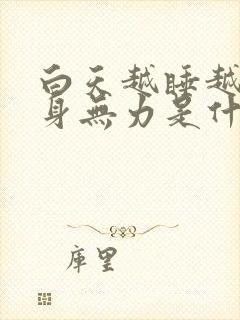 白天越睡越
身無力是什
庫里